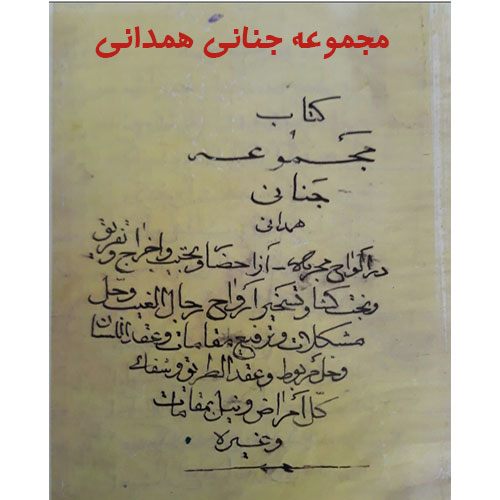 مجموعه جنانی همدانی
کتاب
مَجْموعه
جَنانی
همدانی
در الواح مجربات - از احضار و تحبیب و اخراج و تفریق
و بخت گشا و تسخیر ارواح رجال الغیب و حل
مشکلات و ترفیع مقامات و عقد اللسان
و حل مربوط و عقد الطریق و شفای
کل امراض و نیل بمقامات
و غیره